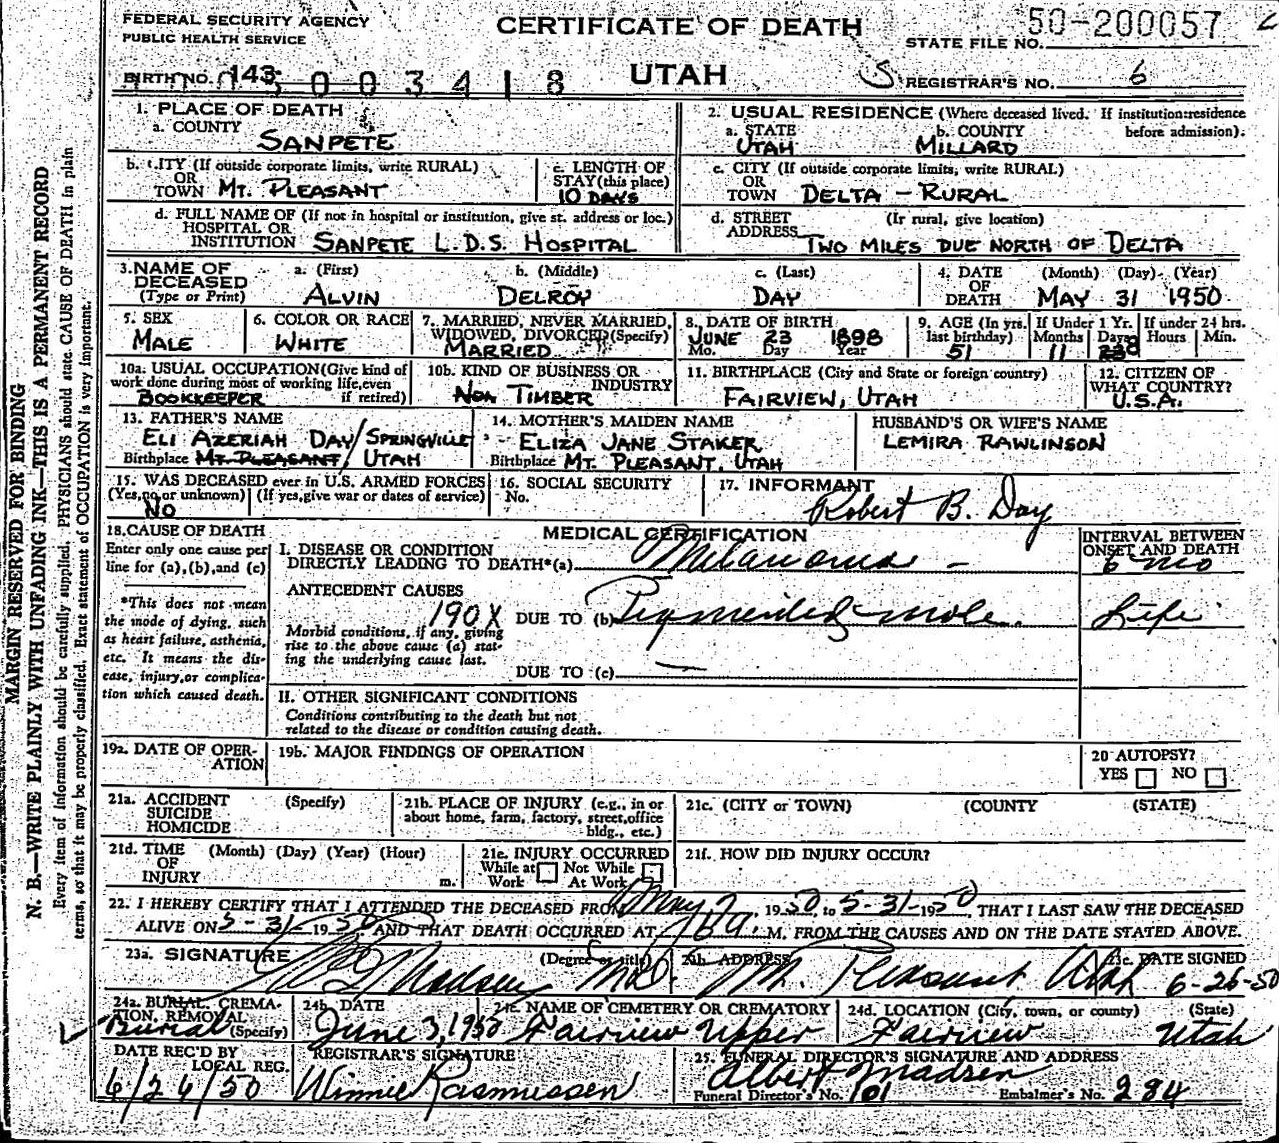 FEDERAL SECURITY AGENCY
PUBLIC HEALTH SERVICE
CERTIFICATE OF DEATH
50-200057
STATE FILE NO.
BIRTH NO. 143
003418
UTAH
REGISTRAR'S NO. 6
1. PLACE OF DEATH
a. COUNTY
SANPETE
2. USUAL RESIDENCE (Where deceased lived. If institution: residence before admission).
a. STATE
UTAH
b. COUNTY
MILLARD
b. CITY (If outside corporate limits, write RURAL)
OR
TOWN MT. PLEASANT
c. LENGTH OF
STAY (this place)
10 DAYS
c. CITY (If outside corporate limits, write RURAL)
OR
TOWN DELTA - RURAL
d. FULL NAME OF (If not in hospital or institution, give st. address or loc.)
HOSPITAL OR
INSTITUTION SANPETE L.D.S. HOSPITAL
d. STREET (If rural, give location)
ADDRESS TWO MILES DUE NORTH OF DELTA
3. NAME OF
DECEASED
(Type or Print)
a. (First)
ALVIN
b. (Middle)
DELROY
c. (Last)
DAY
4. DATE (Month) (Day) (Year)
OF
DEATH MAY 31 1950
5. SEX
MALE
6. COLOR OR RACE
WHITE
7. MARRIED, NEVER MARRIED,
WIDOWED, DIVORCED (Specify)
MARRIED
8. DATE OF BIRTH
JUNE 23 1898
Mo. Day Year
9. AGE (In yrs.
last birthday)
51
If Under 1 Yr.
Months Days
11
If under 24 hrs.
Hours Min.
10a. USUAL OCCUPATION (Give kind of
work done during most of working life, even
if retired)
BOOKKEEPER
10b. KIND OF BUSINESS OR
INDUSTRY
TIMBER
11. BIRTHPLACE (City and State or foreign country)
FAIRVIEW, UTAH
12. CITIZEN OF
WHAT COUNTRY?
U.S.A.
13. FATHER'S NAME
ELI AZERIAH DAY / SPRINGVILLE
Birthplace MT. PLEASANT / UTAH
14. MOTHER'S MAIDEN NAME
ELIZA JANE STAKER
Birthplace MT. PLEASANT, UTAH
HUSBAND'S OR WIFE'S NAME
LEMIRA RAWLINSON
15. WAS DECEASED ever in U.S. ARMED FORCES
(Yes, no, or unknown) (If yes, give war or dates of service)
NO
16. SOCIAL SECURITY
No.
17. INFORMANT
Robert B. Day
18. CAUSE OF DEATH
Enter only one cause per
line for (a), (b), and (c)
*This does not mean
the mode of dying, such
as heart failure, asthenia,
etc. It means the dis-
ease, injury, or complica-
tion which caused death.
MEDICAL CERTIFICATION
INTERVAL BETWEEN
ONSET AND DEATH
I. DISEASE OR CONDITION
DIRECTLY LEADING TO DEATH*(a) Milanoma -
6 mo
ANTECEDENT CAUSES
190X DUE TO (b) Pigmented mole.
Life
Morbid conditions, if any, giving
rise to the above cause (a) stat-
ing the underlying cause last.
DUE TO (c) —
II. OTHER SIGNIFICANT CONDITIONS
Conditions contributing to the death but not
related to the disease or condition causing death.
19a. DATE OF OPER-
ATION
19b. MAJOR FINDINGS OF OPERATION
20 AUTOPSY?
YES NO
21a. ACCIDENT (Specify)
SUICIDE
HOMICIDE
21b. PLACE OF INJURY (e.g., in or
about home, farm, factory, street, office
bldg., etc.)
21c. (CITY or TOWN) (COUNTY) (STATE)
21d. TIME (Month) (Day) (Year) (Hour)
OF
INJURY m.
21e. INJURY OCCURRED
While at Work Not While At Work
21f. HOW DID INJURY OCCUR?
22. I HEREBY CERTIFY THAT I ATTENDED THE DECEASED FROM May 1950, to 5-31-1950, THAT I LAST SAW THE DECEASED
ALIVE ON 5-31-1950 AND THAT DEATH OCCURRED AT M. FROM THE CAUSES AND ON THE DATE STATED ABOVE.
23a. SIGNATURE (Degree or title)
Madsen M.D.
23b. ADDRESS
Mt. Pleasant, Utah
23c. DATE SIGNED
6-26-50
24a. BURIAL, CREMA-
TION, REMOVAL
(Specify)
Burial
24b. DATE
June 3, 1950
24c. NAME OF CEMETERY OR CREMATORY
Fairview Upper
24d. LOCATION (City, town, or county) (State)
Fairview Utah
DATE REC'D BY
LOCAL REG.
6/26/50
REGISTRAR'S SIGNATURE
Winnie Rasmussen
25. FUNERAL DIRECTOR'S SIGNATURE AND ADDRESS
Albert Madsen
Funeral Director's No. 101 Embalmer's No. 284
MARGIN RESERVED FOR BINDING
N. B.—WRITE PLAINLY WITH UNFADING INK—THIS IS A PERMANENT RECORD
Every item of information should be carefully supplied. PHYSICIANS should state CAUSE OF DEATH in plain
terms, so that it may be properly classified. Exact statement of OCCUPATION is very important.